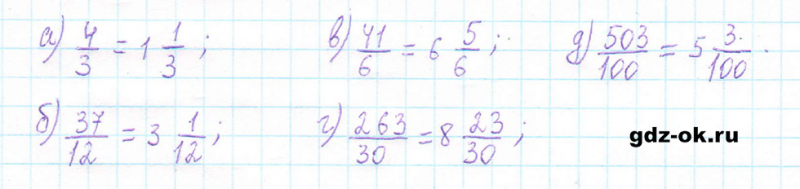 а) 4/3 = 1 1/3; в) 41/6 = 6 5/6; д) 503/100 = 5 3/100.
б) 37/12 = 3 1/12; г) 263/30 = 8 23/30;
gdz-ok.ru